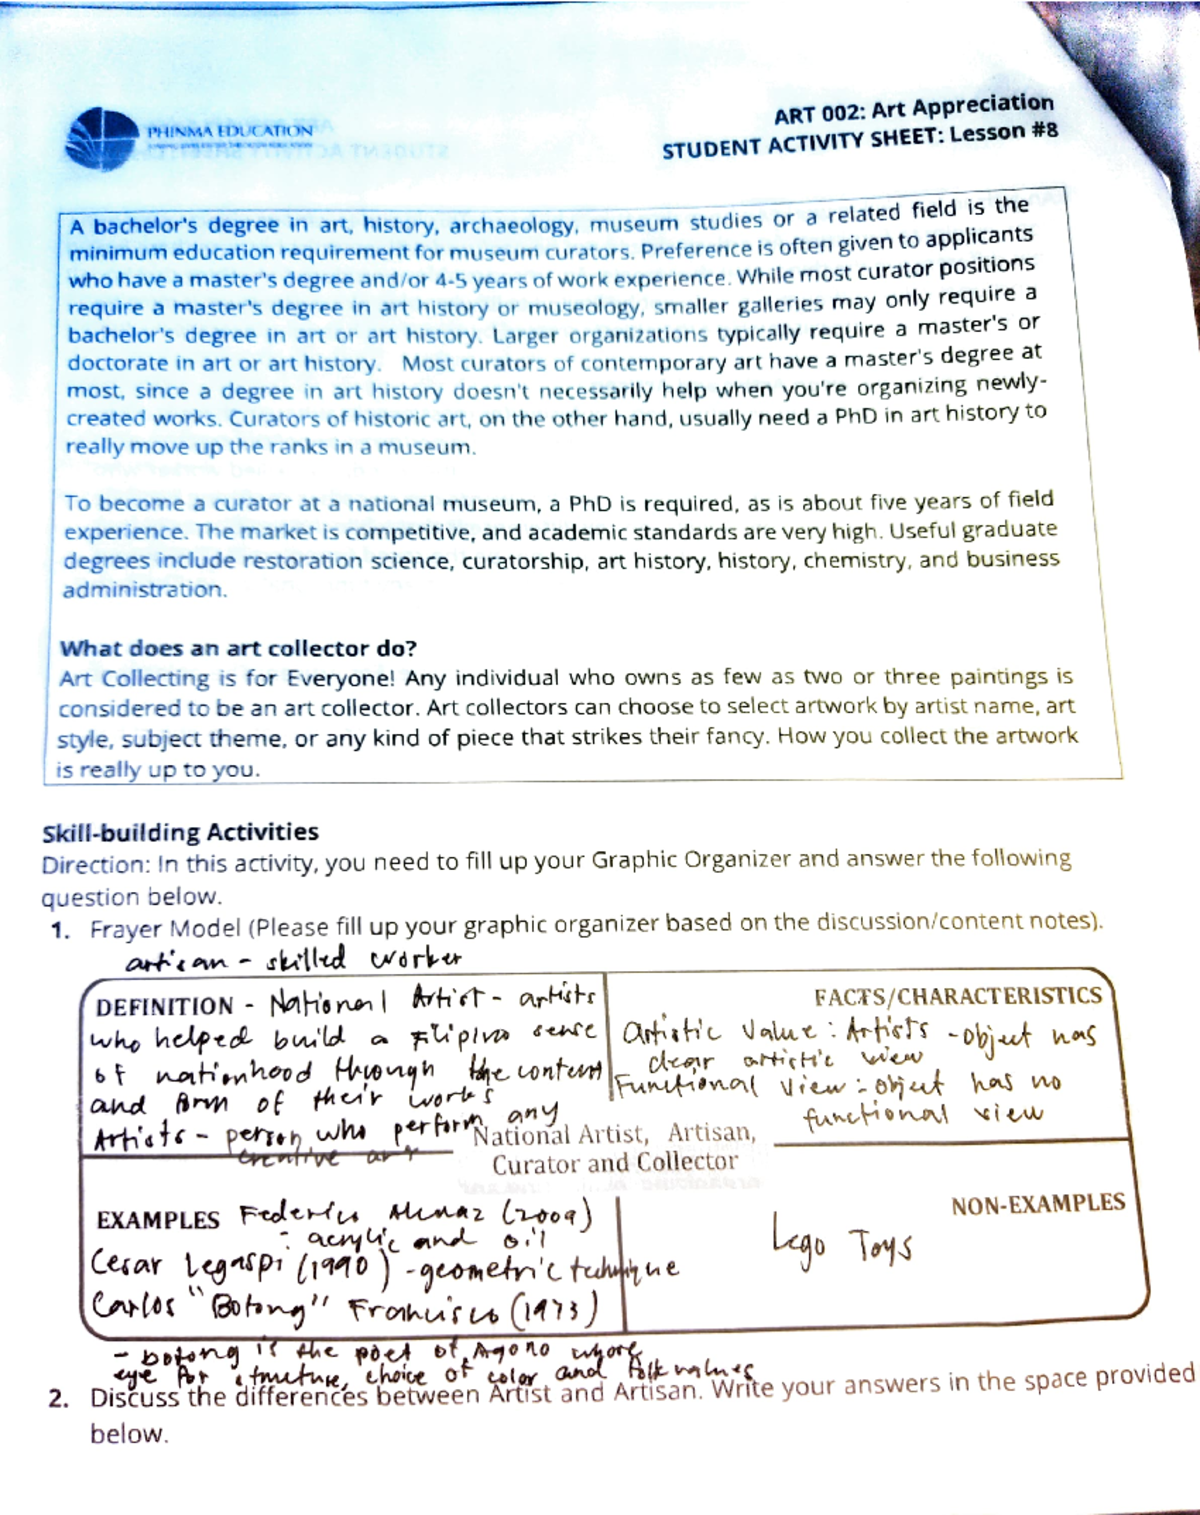 PHINMA EDUCATION
ART 002: Art Appreciation
STUDENT ACTIVITY SHEET: Lesson #8
A bachelor's degree in art, history, archaeology, museum studies or a related field is the
minimum education requirement for museum curators. Preference is often given to applicants
who have a master's degree and/or 4-5 years of work experience. While most curator positions
require a master's degree in art history or museology, smaller galleries may only require a
bachelor's degree in art or art history. Larger organizations typically require a master's or
doctorate in art or art history. Most curators of contemporary art have a master's degree at
most, since a degree in art history doesn't necessarily help when you're organizing newly-
created works. Curators of historic art, on the other hand, usually need a PhD in art history to
really move up the ranks in a museum.
To become a curator at a national museum, a PhD is required, as is about five years of field
experience. The market is competitive, and academic standards are very high. Useful graduate
degrees include restoration science, curatorship, art history, history, chemistry, and business
administration.
What does an art collector do?
Art Collecting is for Everyone! Any individual who owns as few as two or three paintings is
considered to be an art collector. Art collectors can choose to select artwork by artist name, art
style, subject theme, or any kind of piece that strikes their fancy. How you collect the artwork
is really up to you.
Skill-building Activities
Direction: In this activity, you need to fill up your Graphic Organizer and answer the following
question below.
1. Frayer Model (Please fill up your graphic organizer based on the discussion/content notes).
artisan - skilled worker
DEFINITION - National Artist - artists
who helped build a Filipino sense
of nationhood through the content
and form of their works
Artists - person who perform any
creative art
FACTS/CHARACTERISTICS
Artistic Value : Artists - object has
clear artistic view
Functional View : object has no
functional view
National Artist, Artisan,
Curator and Collector
EXAMPLES Federico (2009)
- acrylic and oil
Cesar Legaspi (1990) - geometric technique
Carlos "Botong" Francisco (1973)
- botong is the poet of Agono whose
eye for structure, choice of color and folk values
NON-EXAMPLES
Lego Toys
2. Discuss the differences between Artist and Artisan. Write your answers in the space provided
below.